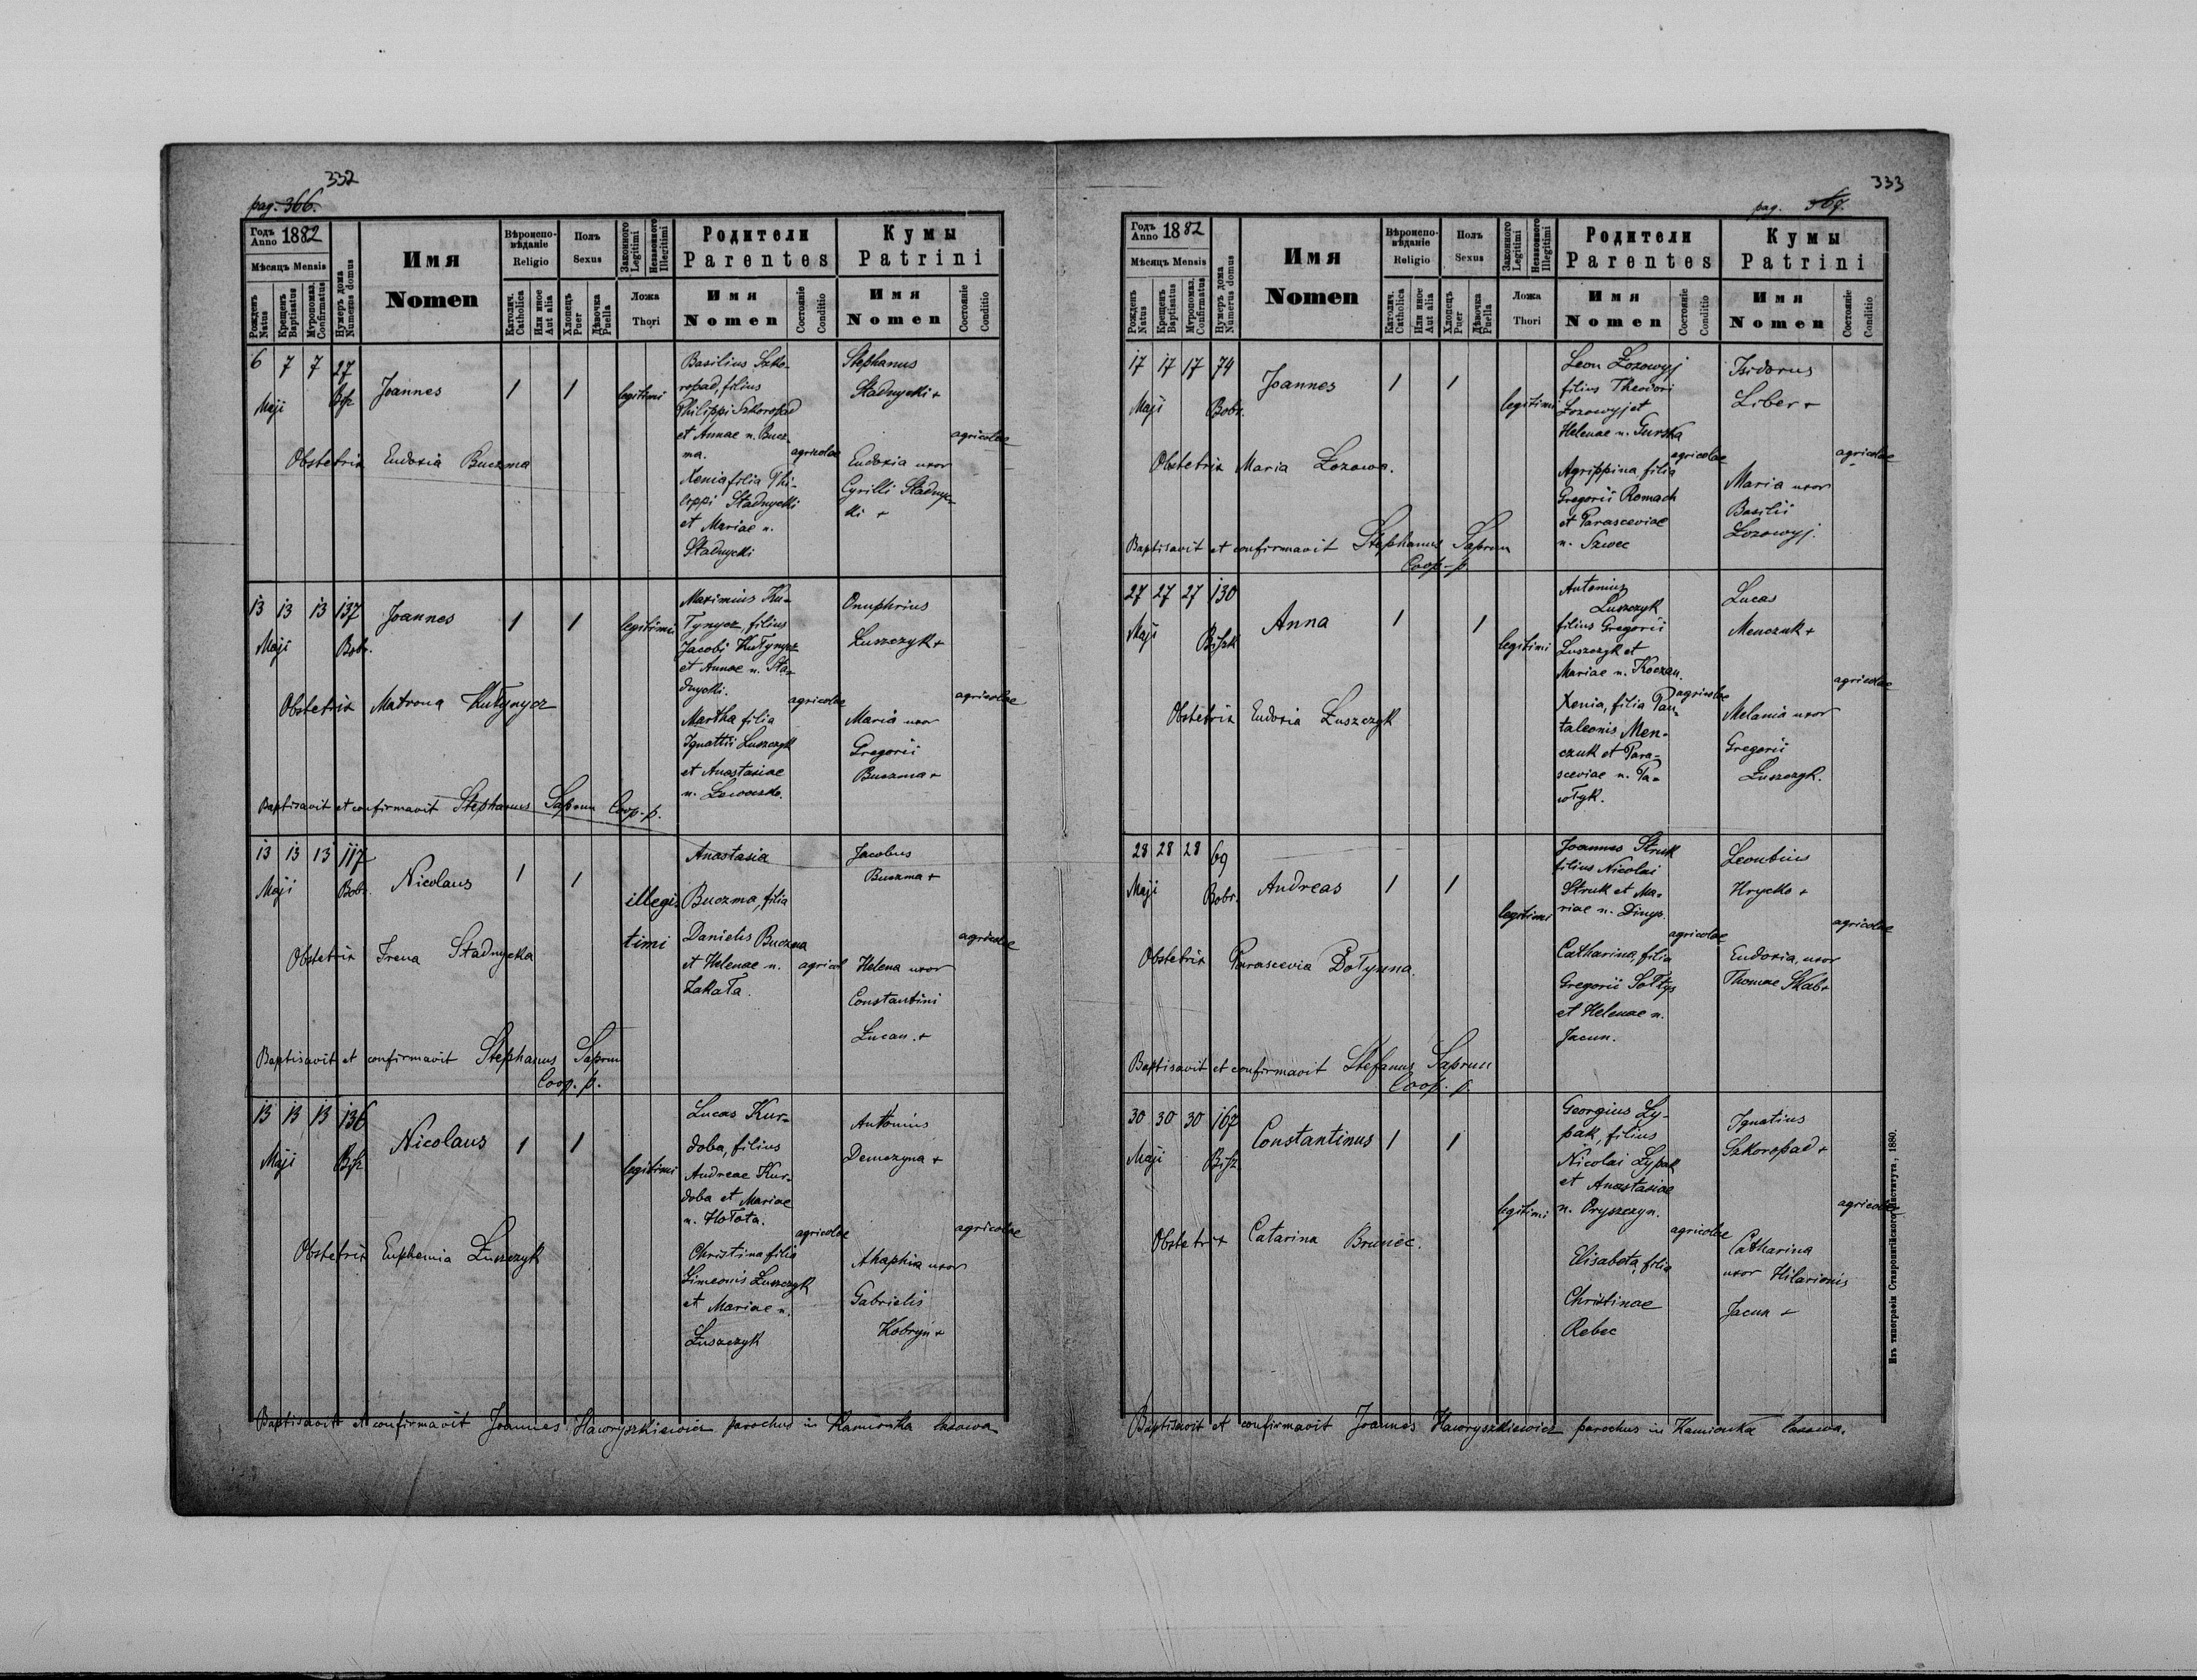 332
pag. 366.
Годъ Anno 1882
Мѣсяцъ Mensis
Рожденъ Natus
Крещенъ Baptisatus
Мѵропомаз. Confirmatus
Нумеръ дома Numerus domus
Имя
Nomen
Вѣроиспо-
вѣданіе
Religio
Католич. Catholica
Или иное Aut alia
Полъ
Sexus
Хлопецъ Puer
Дѣвочка Puella
Законного Legitimi
Незаконного Illegitimi
Ложа
Thori
Родители
Parentes
Имя
Nomen
Состояніе Conditio
Кумы
Patrini
Имя
Nomen
Состояніе Conditio
6 7 7 27
Maji
Joannes
1 1
legitimi
Basilius Szko-
ropad, filius
Philippi Szkoropad
et Annae n. Bucz-
ma.
agricolae
Xenia filia Phi-
lippi Stadnycki
et Mariae n.
Stadnycki
Stephanus
Stadnycki +
agricolae
Eudoxia uxor
Cyrilli Stadnyc-
ki +
Obstetrix Eudoxia Buczma
13 13 13 137
Maji Bobr.
Joannes
1 1
legitimi
Maximius Ku-
Tynycz, filius
Jacobi KuTynycz
et Annae n. Sta-
dnycki.
agricolae
Martha filia
Ignattii Luszczyk
et Anastasiae
Onuphrius
Łuszczyk +
agricolae
Maria uxor
Gregorii
Buczma +
Obstetrix Matrona KuTynycz
Baptisavit et confirmavit Stephanus Saprun Coop. p.
13 13 13 117
Maji Bobr.
Nicolaus
1 1
illegi-
timi
Anastasia
Buczma, filia
Danielis Buczma
et Helenae n.
ZakaTa.
agricol
Jacobus
Buczma +
agricolae
Helena uxor
Constantini
Łucan. +
Obstetrix Irena Stadnycka
Baptisavit et confirmavit Stephanus Saprun
Coop. p.
13 13 13 136
Maji
Nicolaus
1 1
legitimi
Lucas Kur-
doba, filius
Andreae Kur-
doba et Mariae
n. HoTota.
agricolae
Christina filia
Simeonis Łuszczyk
et Mariae n.
Łuszczyk
Antonius
Demczyna +
agricolae
Ahaphia uxor
Gabrielis
Kobryn +
Obstetrix Euphemia Łuszczyk
Baptisavit et confirmavit Joannes Hawryszkiewicz parochus in Kamionka lasowa
333
pag. 367.
Годъ Anno 1882
Мѣсяцъ Mensis
Рожденъ Natus
Крещенъ Baptisatus
Мѵропомаз. Confirmatus
Нумеръ дома Numerus domus
Имя
Nomen
Вѣроиспо-
вѣданіе
Religio
Католич. Catholica
Или иное Aut alia
Полъ
Sexus
Хлопецъ Puer
Дѣвочка Puella
Законного Legitimi
Незаконного Illegitimi
Ложа
Thori
Родители
Parentes
Имя
Nomen
Состояніе Conditio
Кумы
Patrini
Имя
Nomen
Состояніе Conditio
17 17 17 74
Maji Bobr.
Joannes
1 1
legitimi
Leon Łozowyj
filius Theodori
Łozowyj et
Helenae n. Gurska
agricolae
Agrippina filia
Gregorii Romach
et Parasceviae
n. Szwec
Isidorus
Liber +
agricolae
Maria uxor
Basilii
Łozowyj.
Obstetrix Maria Łozowa.
Baptisavit et confirmavit Stephanus Saprun
Coop. p.
27 27 27 130
Maji
Anna
1 1
legitimi
Antonius
Łuszczyk
filius Gregorii
Łuszczyk et
Mariae n. Koczan.
agricolae
Xenia, filia Pan-
taleonis Men-
czuk et Para-
sceviae n. Pa-
wTyk.
Lucas
Menczuk +
agricolae
Melania uxor
Gregorii
Łuszczyk.
Obstetrix Eudoxia Łuszczyk
28 28 28 69
Maji Bobr.
Andreas
1 1
legitimi
Joannes Struk
filius Nicolai
Struk et Ma-
riae n. Dinys.
agricolae
Catharina, filia
Gregorii SoTtys
et Helenae n.
Jacun.
Leontius
Hrycko +
agricolae
Eudoxia, uxor
Thomae Skab +
Obstetrix Parascevia DoTynna.
Baptisavit et confirmavit Stefanus Saprun
Coop. p.
30 30 30 167
Maji
Constantinus
1 1
legitimi
Georgius Ły-
pak, filius
Nicolai Łypak
et Anastasiae
n. Oryszczyn.
agricolae
Elisabeta, filia
Christinae
Rebec
Ignatius
Szkoropad +
agricolae
Catharina
uxor Hilarionis
Jacun +
Obstetrix Catarina Brunec.
Baptisavit et confirmavit Joannes Hawryszkiewicz parochus in Kamionka lasowa.
Изъ типографіи Ставропигійского Института, 1880.